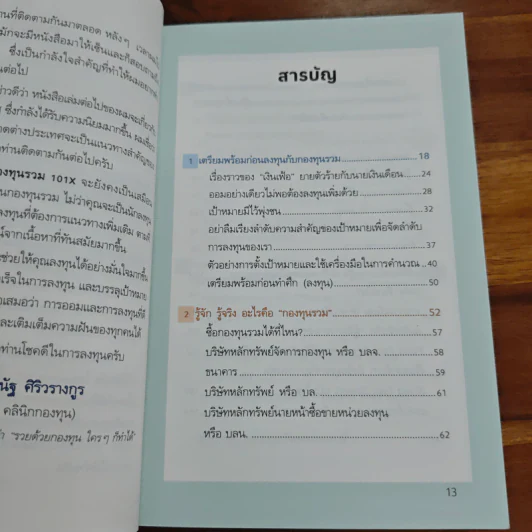 านที่ติดตามกันมาตลอด หลังๆ
มักจะมีหนังสือมาให้เซ็นและก็สอบถาม
ซึ่งเป็นกำลังใจสำคัญที่ทำให้ผมอยาก
นต่อไป
่าวดีว่า หนังสือเล่มต่อไปของผมจะเกี่ยวกับ
ซึ่งกำลังได้รับความนิยมมากขึ้น
ดต่างประเทศจะเป็นแนวทางสำคัญของ
ท่านติดตามกันต่อไปครับ
องทุนรวม 101X จะยังคงเป็นเสมือน
นกองทุนรวม ไม่ว่าคุณจะเป็นนักลงทุน
ลงทุนที่ต้องการแนวทางเพิ่มเติม
น์จากเนื้อหาที่ทันสมัยมากขึ้น
ช่วยให้คุณลงทุนได้อย่างมั่นใจมากขึ้น
เร็จในการลงทุน และบรรลุเป้าหมาย
อเสมอว่า การออมและการลงทุนที่ดี
ละเติมเต็มความฝันของทุกคนได้
ท่านโชคดีในการลงทุนครับ
นัฐ ศิริวรางกูร
คลินิกกองทุน)
"รวยด้วยกองทุน ใครๆ ก็ทำได้"
สารบัญ
1 เตรียมพร้อมก่อนลงทุนกับกองทุนรวม 18
เรื่องราวของ "เงินเฟ้อ" ยายตัวร้ายกับนายเงินเดือน 24
ออมอย่างเดียวไม่พอต้องลงทุนเพิ่มด้วย 28
เป้าหมายมีไว้พุ่งชน 32
อย่าลืมเรียงลำดับความสำคัญของเป้าหมายเพื่อจัดลำดับ
การลงทุนของเรา 37
ตัวอย่างการตั้งเป้าหมายและใช้เครื่องมือในการคำนวณ 40
เตรียมพร้อมก่อนทำศึก (ลงทุน) 50
2 รู้จัก รู้จริง อะไรคือ "กองทุนรวม" 52
ซื้อกองทุนรวมได้ที่ไหน? 57
บริษัทหลักทรัพย์จัดการกองทุน หรือ บลจ. 58
ธนาคาร 59
บริษัทหลักทรัพย์ หรือ บล. 61
บริษัทหลักทรัพย์นายหน้าซื้อขายหน่วยลงทุน
หรือ บลน. 62
13